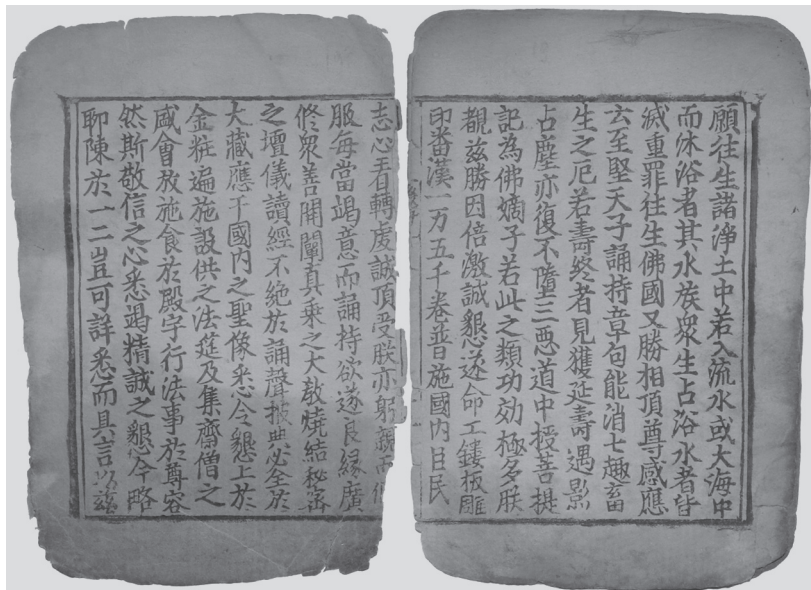 願往生諸浄土中若入流水或大海中
而沐浴者其水族衆生占浴水者皆
滅重罪往生佛國又勝相頂尊感應
云至堅天子誦持章句能消七趣畜
生之厄若壽終者見獲延壽遇影
占塵亦復不墮三悪道中授菩提
記為佛嫡子若此之類功効極多朕
覩兹勝因倍激誠懇遂命工鏤板雕
印番漢一万五千卷普施國内臣民
志心看轉虔誠頂受朕亦躬親而
服每當竭意而誦持欲遂良縁廣
修衆善開闡真乘之大教燒結秘密
之壇儀讀經不絶於誦聲披典必全於
大藏應干國内之聖像悉令懇上於
金粧遍施設供之法筵及集齋僧之
盛會放施食於殿宇行法事於尊容
然斯敬信之心悉竭精誠之懇今略
聊陳於一二豈可詳悉而具言以兹